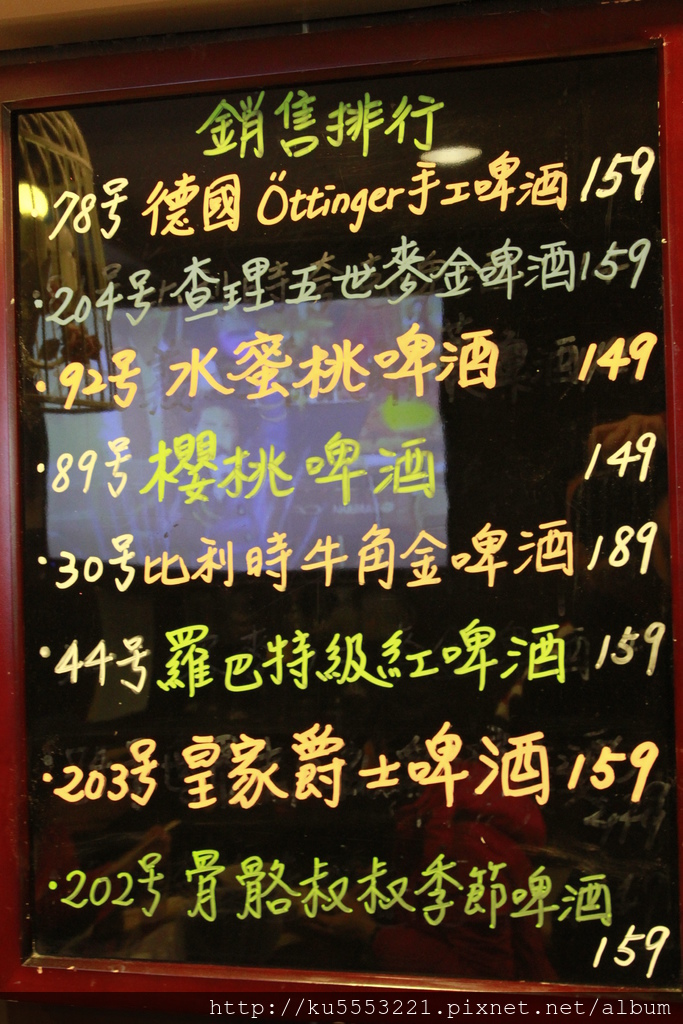 銷售排行
78号 德國 Öttinger手工啤酒 159
·204号 查理五世麥金啤酒 159
·92号 水蜜桃啤酒 149
·89号 櫻桃啤酒 149
·30号 比利時牛角金啤酒 189
·44号 羅巴特級紅啤酒 159
·203号 皇家爵士啤酒 159
·202号 骨骼叔叔季節啤酒
159
http://ku5553221.pixnet.net/album